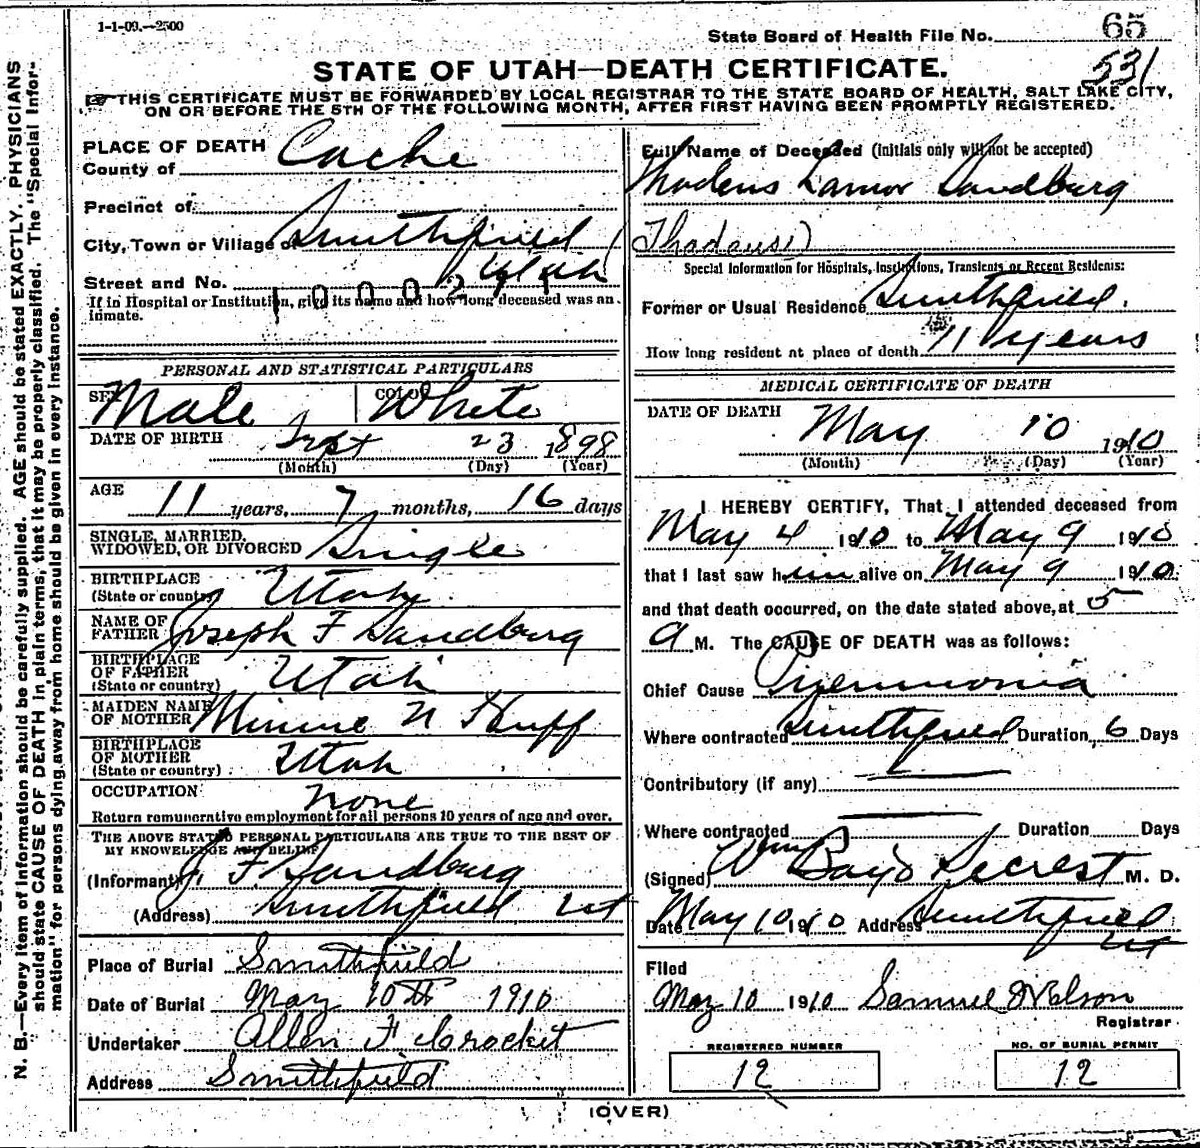 1-1-09.—2500
State Board of Health File No. 65
531
STATE OF UTAH—DEATH CERTIFICATE.
THIS CERTIFICATE MUST BE FORWARDED BY LOCAL REGISTRAR TO THE STATE BOARD OF HEALTH, SALT LAKE CITY,
ON OR BEFORE THE 5TH OF THE FOLLOWING MONTH, AFTER FIRST HAVING BEEN PROMPTLY REGISTERED.
N. B.—Every item of information should be carefully supplied. AGE should be stated EXACTLY. PHYSICIANS
should state CAUSE OF DEATH in plain terms, that it may be properly classified. The "Special Infor-
mation" for persons dying away from home should be given in every instance.
PLACE OF DEATH
County of Cache
Precinct of
City, Town or Village of Smithfield
Street and No. Utah
If in Hospital or Institution, give its name and how long deceased was an
inmate.
PERSONAL AND STATISTICAL PARTICULARS
SEX Male COLOR White
DATE OF BIRTH Sept 23 1898
(Month) (Day) (Year)
AGE 11 years, 7 months, 16 days
SINGLE, MARRIED,
WIDOWED, OR DIVORCED Single
BIRTHPLACE
(State or country) Utah
NAME OF
FATHER Joseph F Sandburg
BIRTHPLACE
OF FATHER
(State or country) Utah
MAIDEN NAME
OF MOTHER Minnie N Huff
BIRTHPLACE
OF MOTHER
(State or country) Utah
OCCUPATION none
Return remunerative employment for all persons 10 years of age and over.
THE ABOVE STATED PERSONAL PARTICULARS ARE TRUE TO THE BEST OF
MY KNOWLEDGE AND BELIEF
(Informant) J. F. Sandburg
(Address) Smithfield Ut
Place of Burial Smithfield
Date of Burial May 10th 1910
Undertaker Allen F Crocket
Address Smithfield
Full Name of Deceased (initials only will not be accepted)
Thadeus Lamor Sandburg
(Thadeus)
Special Information for Hospitals, Institutions, Transients or Recent Residents:
Former or Usual Residence Smithfield.
How long resident at place of death 11 years
MEDICAL CERTIFICATE OF DEATH
DATE OF DEATH May 10 1910
(Month) (Day) (Year)
I HEREBY CERTIFY, That I attended deceased from
May 4 1910 to May 9 1910
that I last saw him alive on May 9 1910
and that death occurred, on the date stated above, at 5
a M. The CAUSE OF DEATH was as follows:
Chief Cause Pneumonia
Where contracted Smithfield Duration 6 Days
Contributory (if any)
Where contracted Duration Days
(Signed) Wm Boyd Secrest M. D.
Date May 10 1910 Address Smithfield
Ut
Filed
May 10 1910 Samuel Nelson
Registrar
REGISTERED NUMBER
12
NO. OF BURIAL PERMIT
12
(OVER)